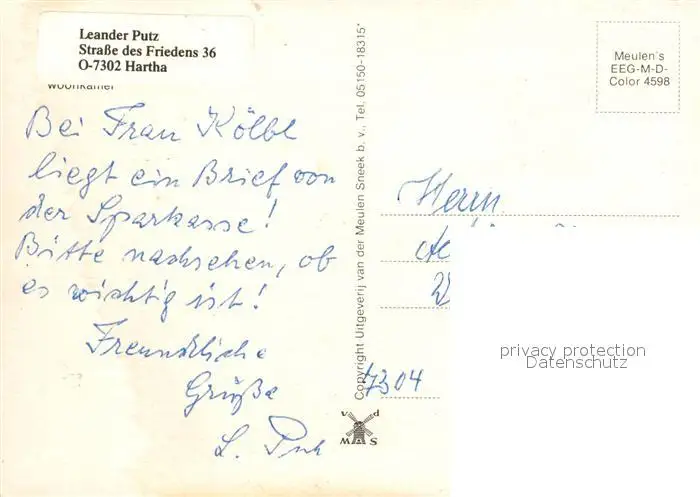 Leander Putz
Straße des Friedens 36
O-7302 Hartha
woonkamer
Bei Frau Kölbl
liegt ein Brief von
der Sparkasse!
Bitte nachsehen, ob
es wichtig ist!
Freundliche
Grüße
L. Putz
Copyright Uitgeverij van der Meulen Sneek b. v., Tel. 05150-18315*
Meulen's
EEG-M-D-
Color 4598
Herrn
7304
v d
M S
privacy protection
Datenschutz